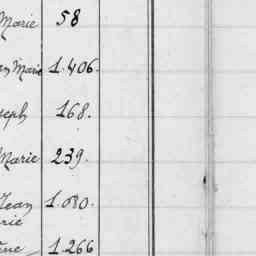 Marie 58
en Marie 1.406.
seph 168.
Marie 239.
Jean 1.080.
rie
1.266